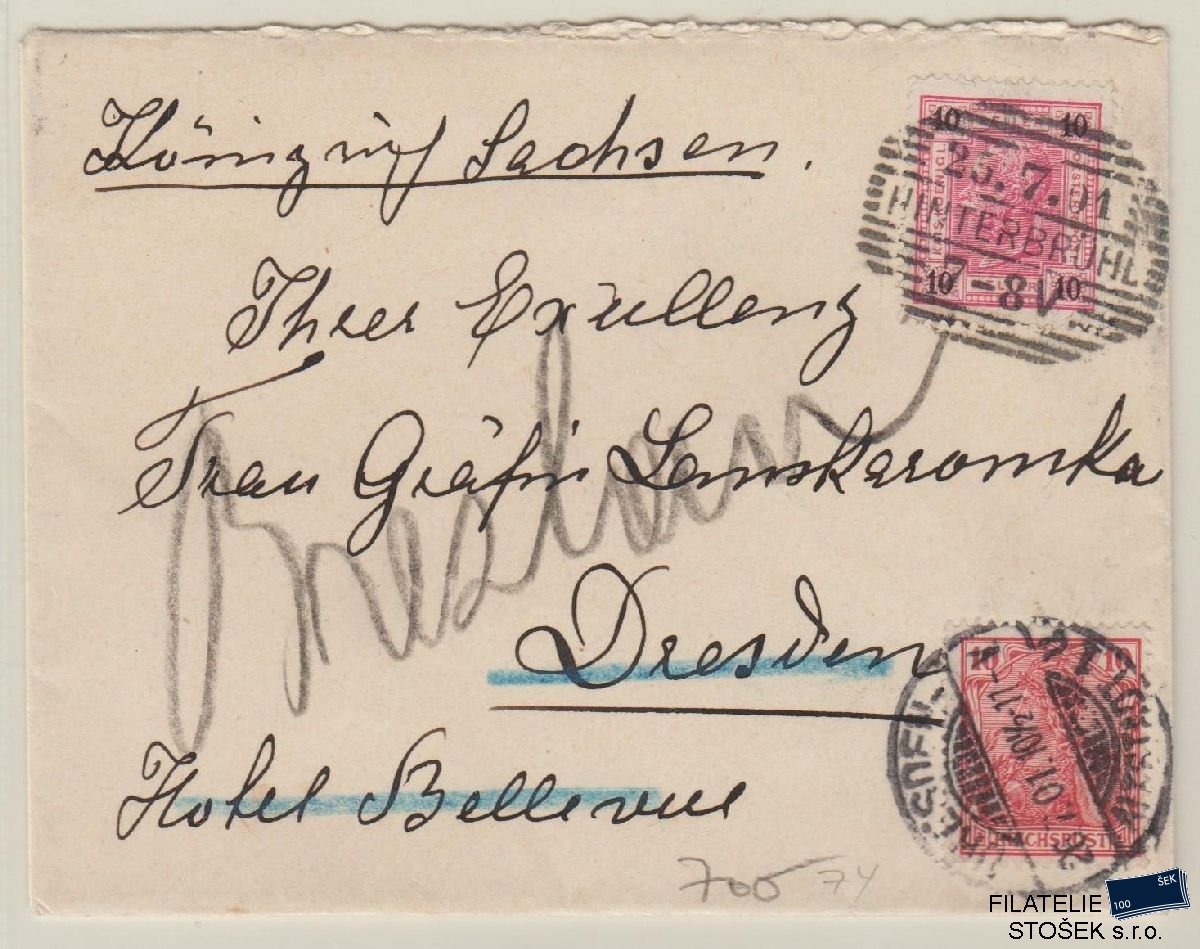 Königreich Sachsen.
Ihrer Exzellenz
Frau Gräfin Lanskoronska
Dresden
Hotel Bellevue
Breslau
10 10
25.7.01
HINTERBRÜHL
7-8V
10 10
10 10
DRESDEN-NEUSTADT 1
26.7.01. 10½-11
REICHSPOST
700 74
FILATELIE
STOŠEK s.r.o.
100 ŠEK